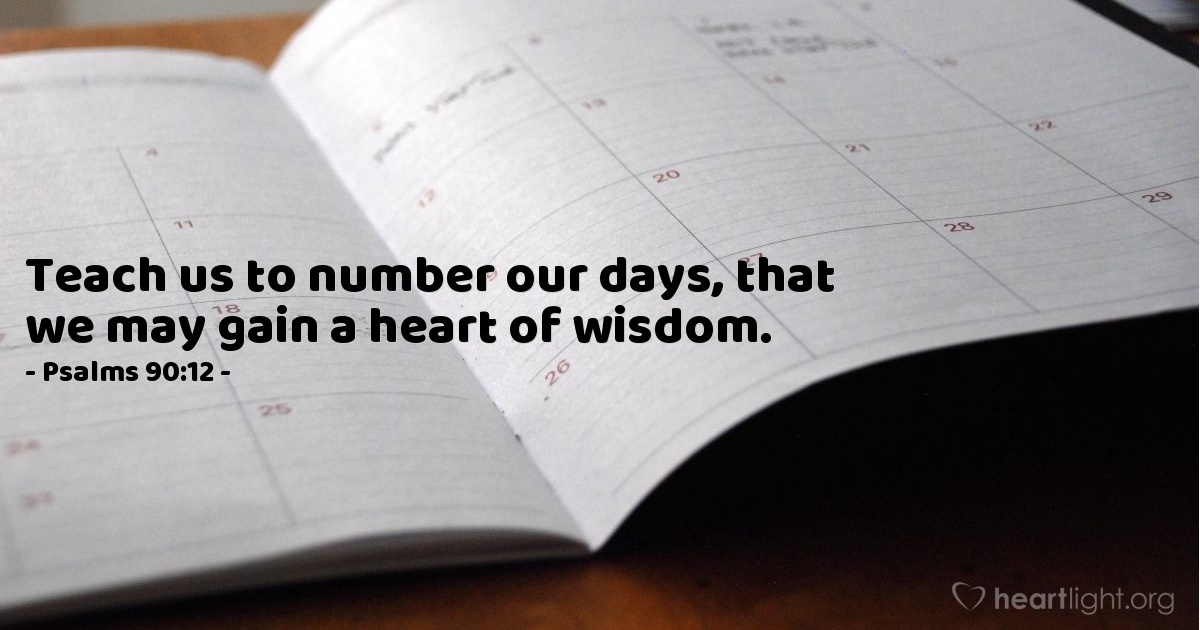 14
13
4
22
21
12
20
11
29
28
27
Teach us to number our days, that
we may gain a heart of wisdom.
18
- Psalms 90:12 -
26
25
24
31
heartlight.org